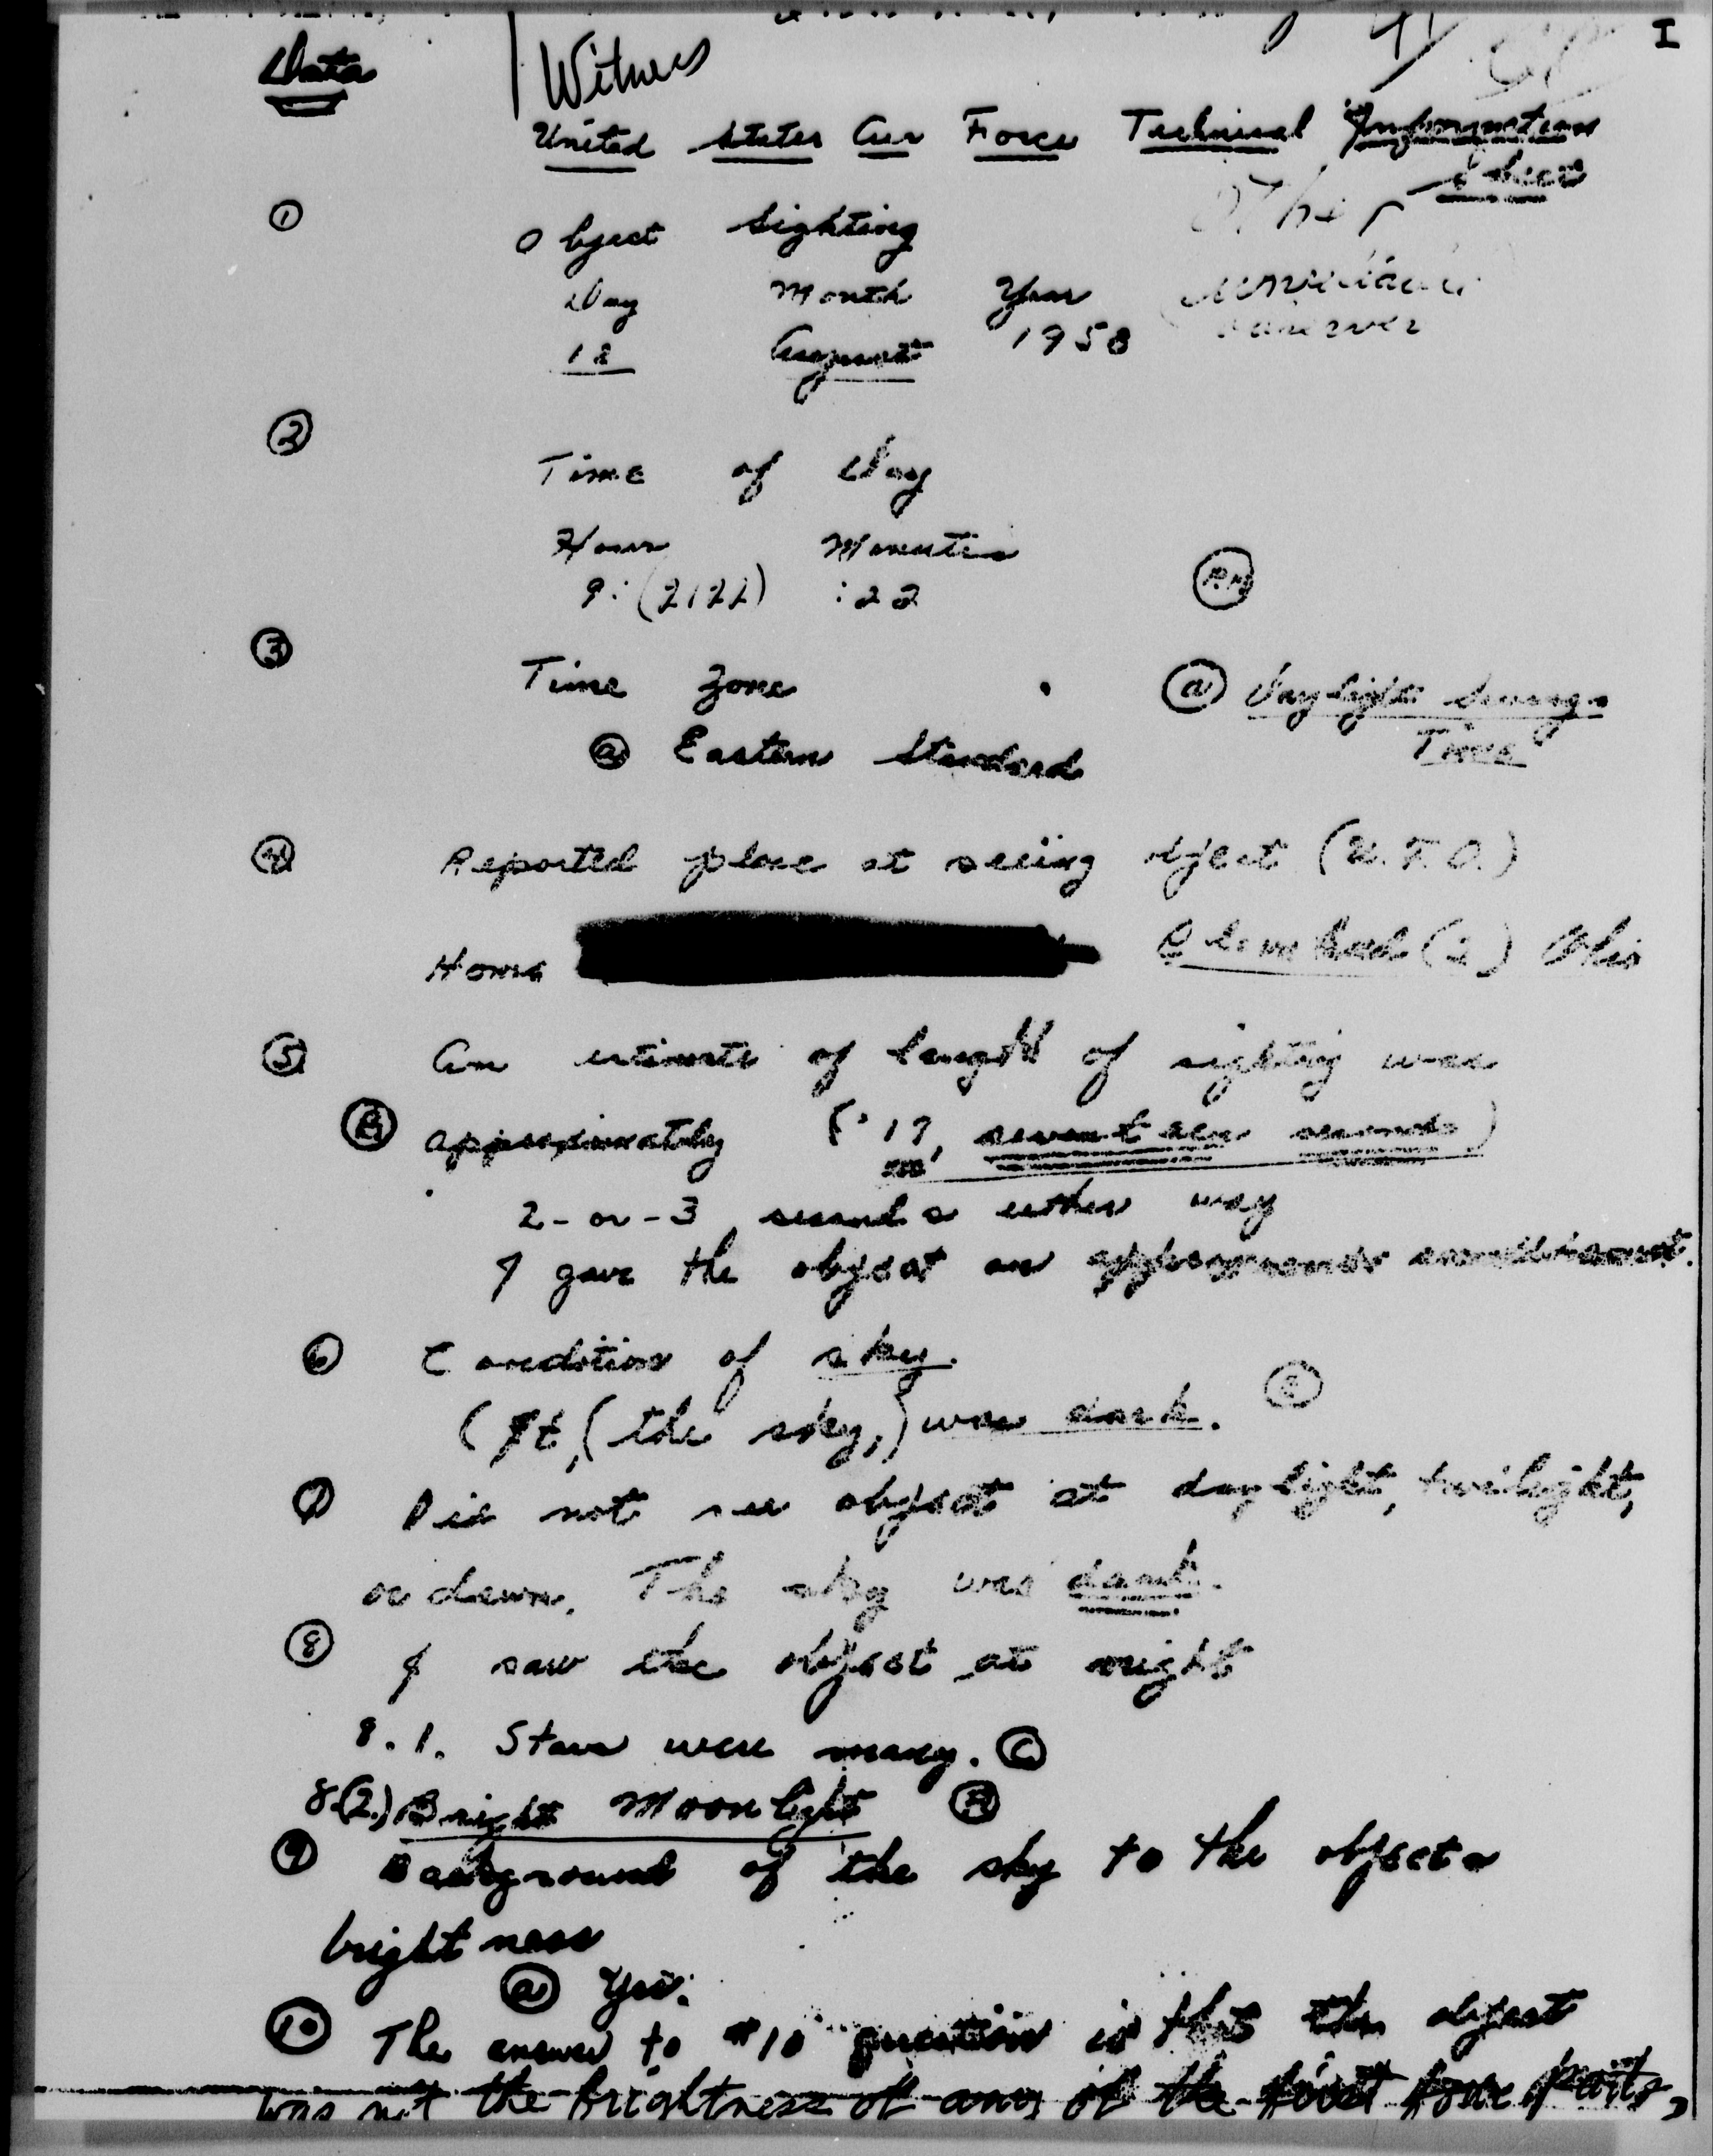 I
Data
Witness
United States Air Force Technical Information
Sheet
①
Object Sighting
Other
Day Month Year
observer
12 August 1958
②
Time of Day
Hour Minutes
9:(2122) :22
PM
③
Time Zone
ⓐ Daylight Savings
Time
ⓐ Eastern Standard
④ Reported place at seeing object (U.F.O.)
Home (2) Ohio
⑤ An estimate of length of sighting was
Ⓑ approximately (:17, seventeen seconds)
2-or-3 seconds either way
I gave the object an
⑥ Condition of sky.
(It, (the sky,) was dark.
⑦ Did not see object at daylight, twilight,
or dawn. The sky was dark.
⑧ I saw the object at night
8.1. Stars were many. Ⓒ
8.(2.) Bright Moonlight Ⓐ
⑨ Background of the sky to the objects
brightness
ⓐ Yes.
⑩ The answer to #10 question is that the object
was not the brightness of any of the first four parts,